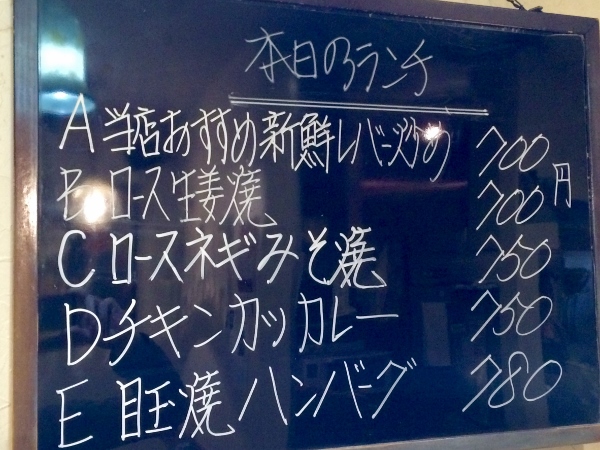 本日のランチ
A 当店おすすめ新鮮レバー炒め 700円
B ロース生姜焼 700
C ロースネギみそ焼 750
D チキンカツカレー 750
E 目玉焼ハンバーグ 780